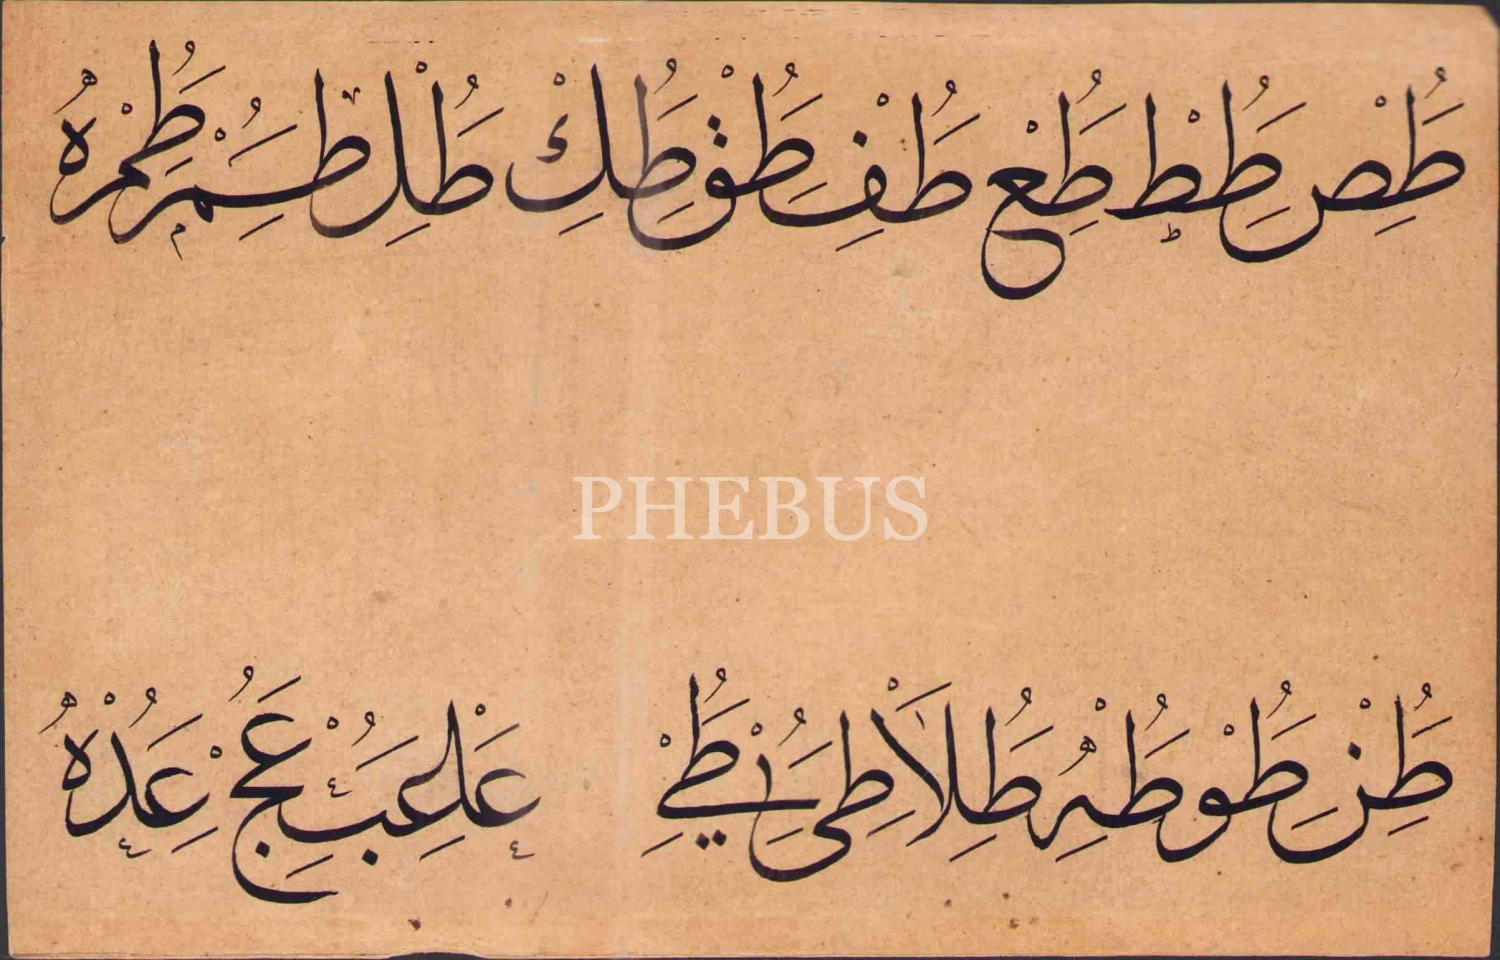 طص طط طع طف طق طك طل طم طمر طمره
PHEBUS
طن طو طه طلا طى طي عا عب عج عد عده